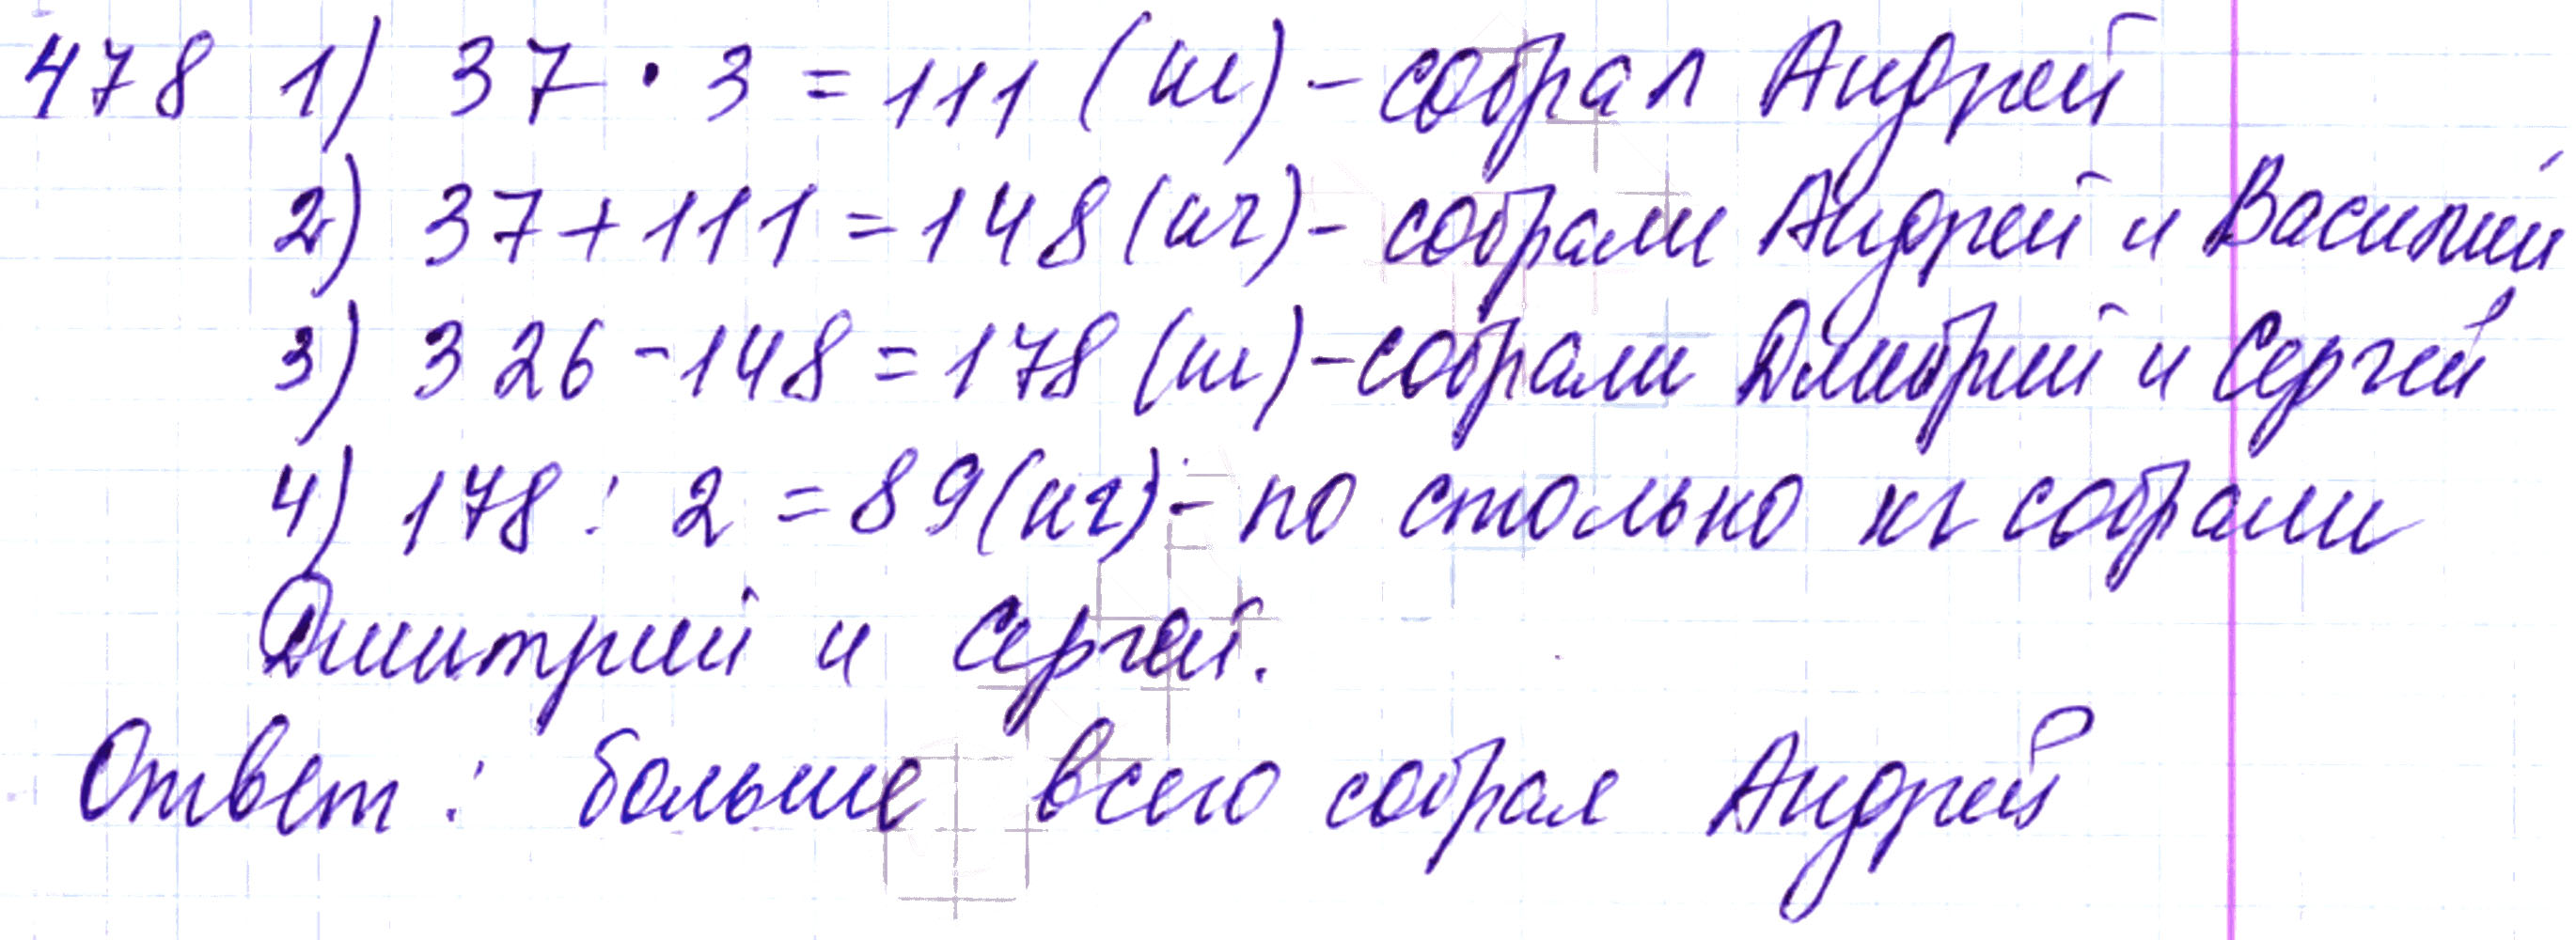 478 1) 37 · 3 = 111 (кг) - собрал Андрей
2) 37 + 111 = 148 (кг) - собрали Андрей и Василий
3) 326 - 148 = 178 (кг) - собрали Дмитрий и Сергей
4) 178 : 2 = 89 (кг) - по столько кг собрали
Дмитрий и Сергей.
Ответ : больше всего собрал Андрей